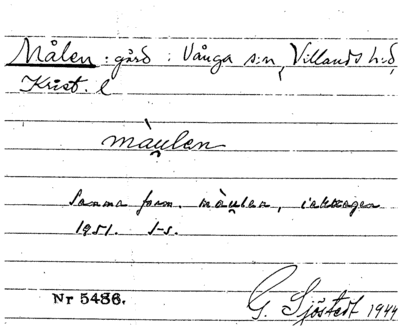 Målen : gård : Vånga s:n, Villands h:d,
Krist. l
màu̯len
Samma form, màu̯len, iakttagen
1951. S-s.
Nr 5486.
G. Sjöstedt 1944